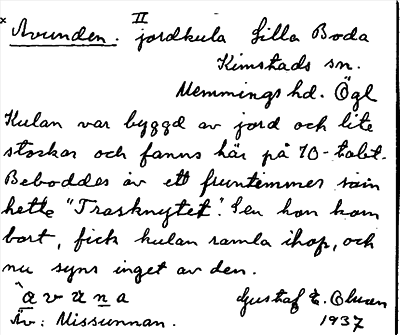 × Avunden. II jordkula Lilla Boda
Kimstads sn.
Memmings hd. Ögl
Kulan var byggd av jord och lite
stockar och fanns här på 70-talet.
Beboddes av ett fruntimmer som
hette "Trasknytet". Sen hon kom
bort, fick kulan ramla ihop, och
nu syns inget av den.
avuna
Äv: Missunnan.
Gustaf E. Olsson
1937